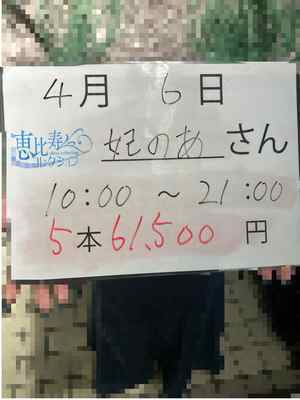 4月 6日
恵比寿
コレクション
妃のあ さん
10:00 ～ 21:00
5本 61,500 円